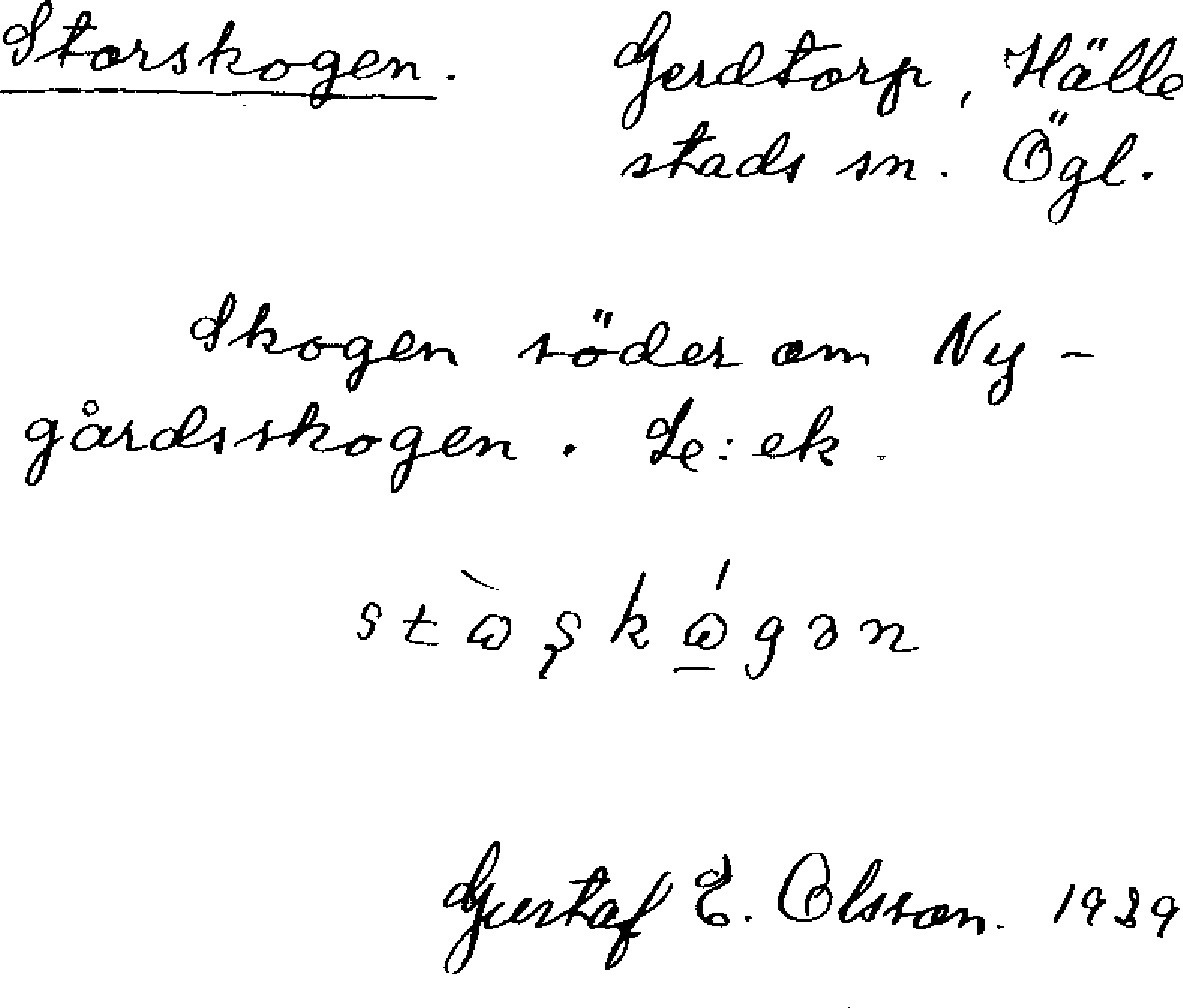 Storskogen. Gerdtorp, Hälle
stads sn. Ögl.
Skogen söder om Ny-
gårdsskogen. Le: ek.
stꞷ̀ʂkꞷ̲́gən
Gustaf E. Olsson. 1939